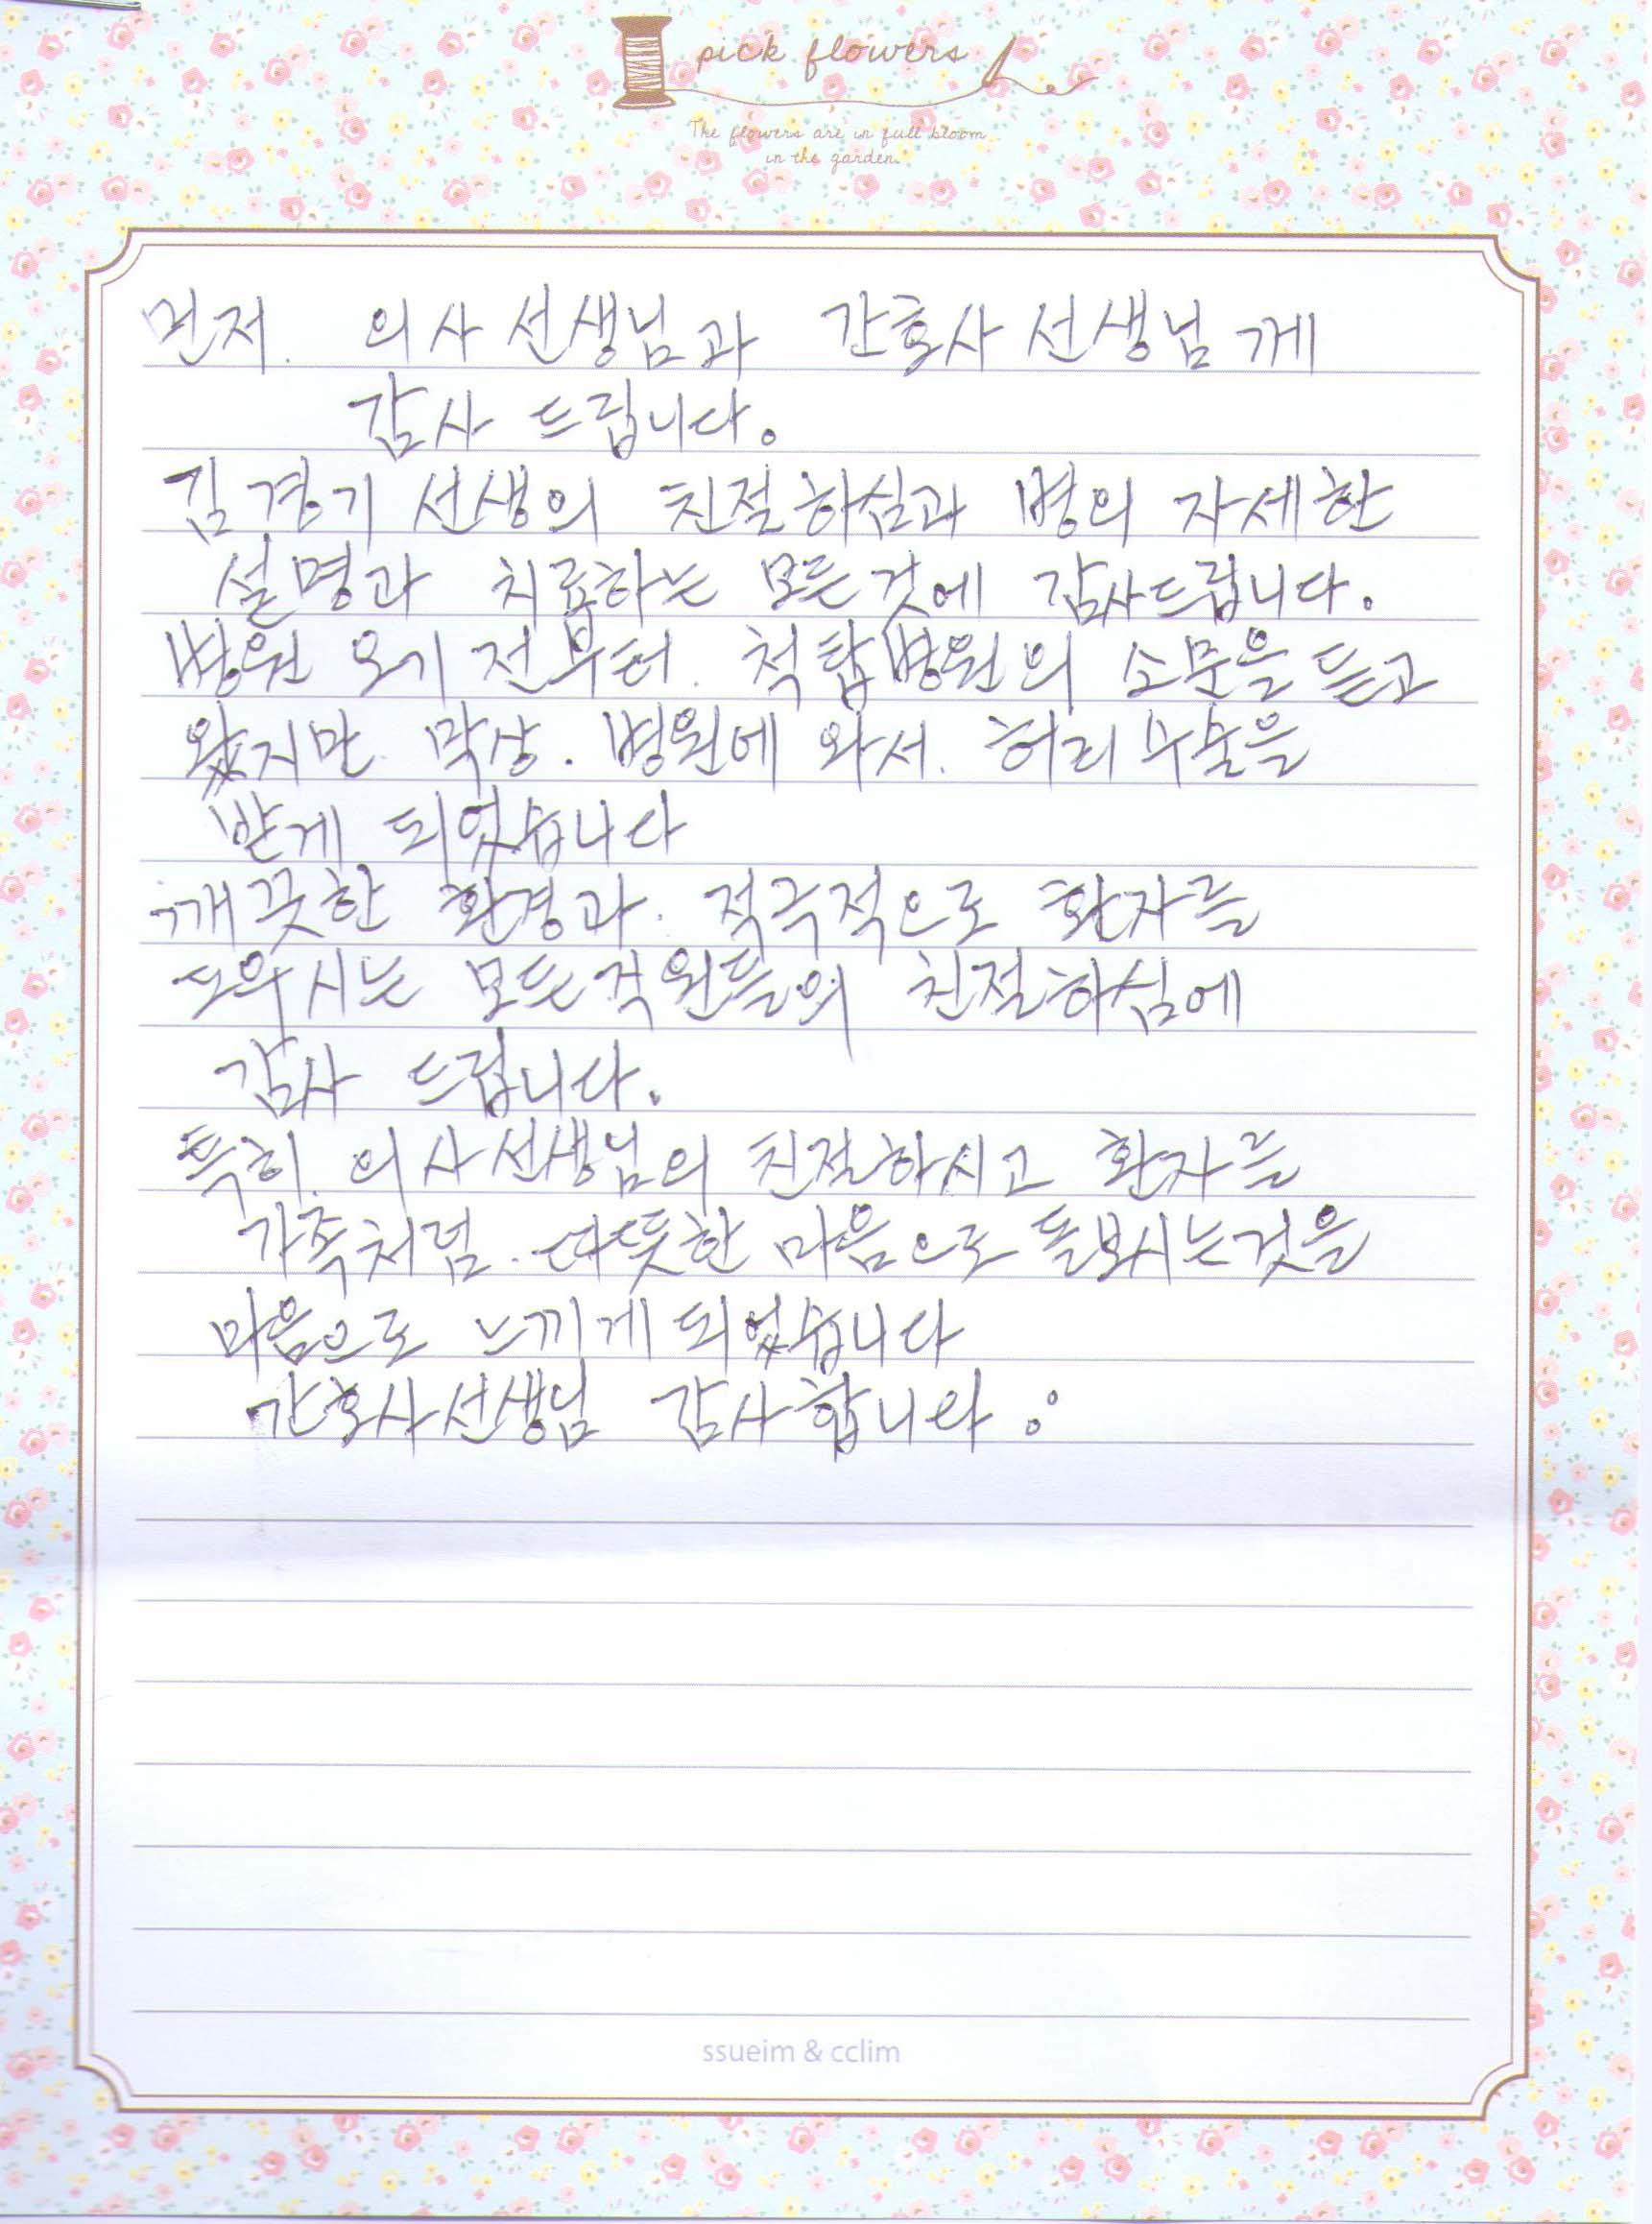 pick flowers
The flowers are in full bloom
in the garden.
먼저. 의사 선생님과 간호사 선생님 께
감사 드립니다.
김경기 선생의 친절하심과 병의 자세한
설명과 치료하는 모든것에 감사드립니다.
병원 오기 전부터. 척탑병원의 소문을 듣고
왔지만. 막상. 병원에 와서. 허리 수술을
받게 되었습니다
깨끗한 환경과. 적극적으로 환자를
도우시는 모든직원들의 친절하심에
감사 드립니다.
특히. 의사선생님의 친절하시고 환자를
가족처럼. 따뜻한 마음으로 돌보시는것을
마음으로 느끼게 되었습니다
간호사선생님 감사합니다
ssueim & cclim